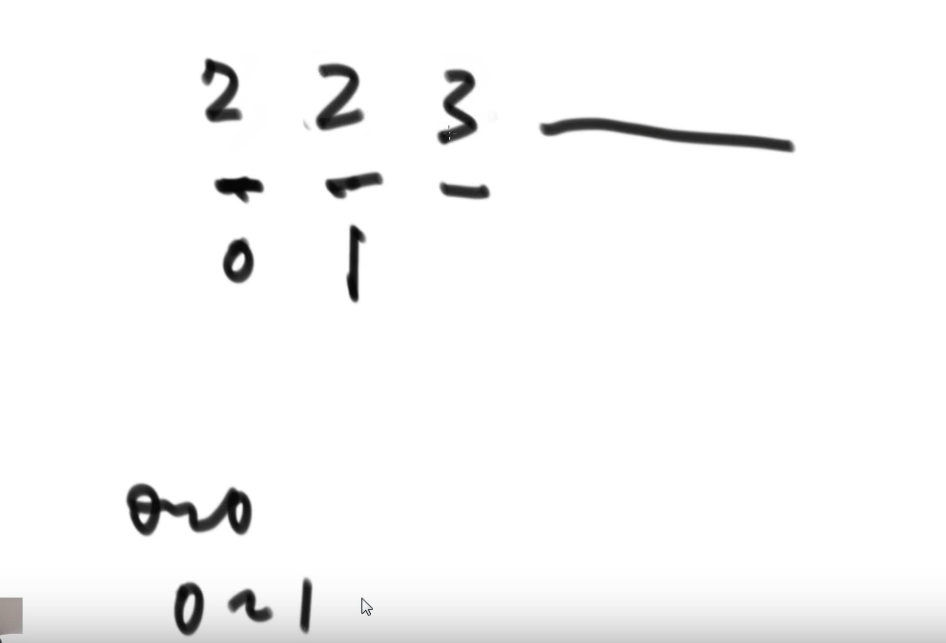 2 2 3
0 1
0~0
0~1